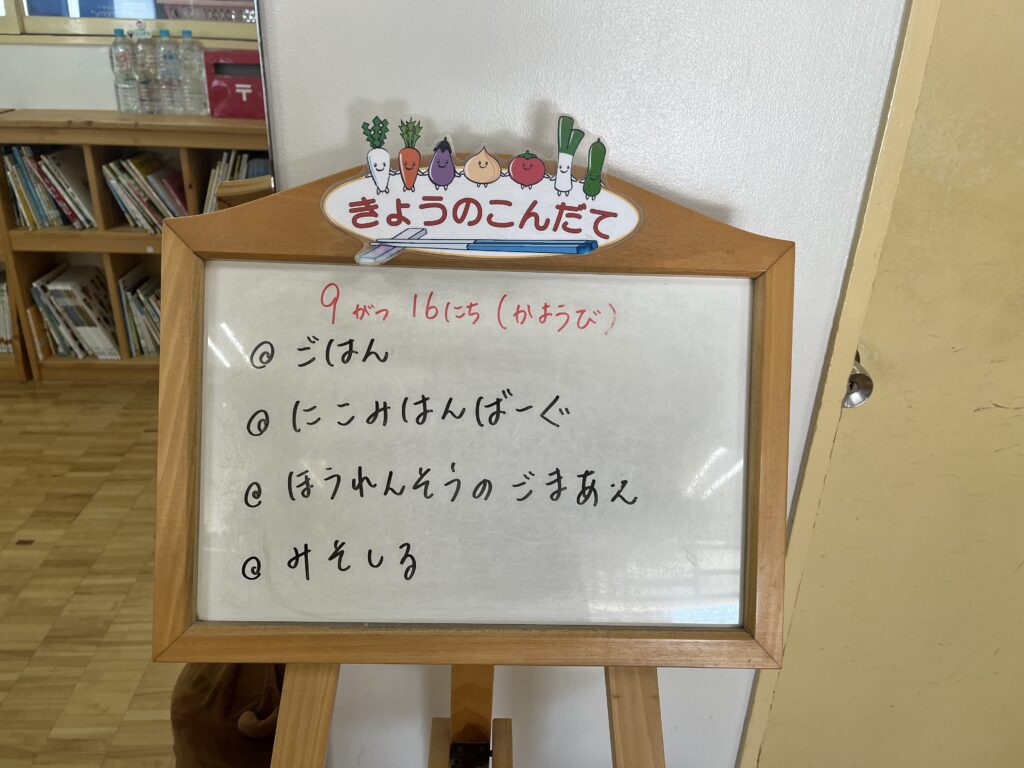 〒
きょうのこんだて
9がつ 16にち (かようび)
@ ごはん
@ にこみはんばーぐ
@ ほうれんそうのごまあえ
@ みそしる